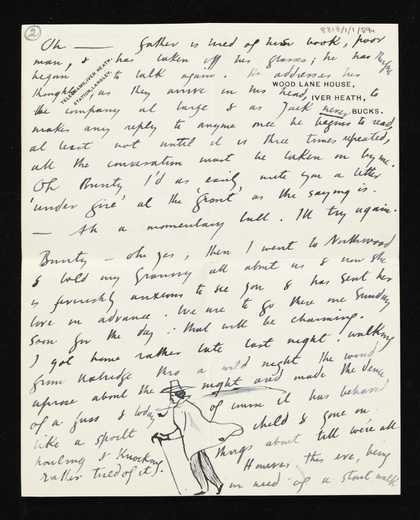 2
8318/1/1/89.
TELEGRAMS, IVER HEATH.
STATION, LANGLEY.
WOOD LANE HOUSE,
IVER HEATH,
BUCKS.
Oh — father is tired of his book, poor
man, & has taken off his glasses; he has therefore
begun to talk again. He addresses his
thoughts as they arrive in his head, to
the company at large & as Jack never
makes any reply to anyone once he begins to read,
at least not until it is three times repeated,
all the conversation must be taken on by me.
Oh Bunty I'd as easily write you a letter
'under fire' at the 'front' as the saying is.
— Ah a momentary lull. I'll try again.
Bunty — oh yes, then I went to Northwood
& told my Granny all about us & now she
is feverishly anxious to see you & has sent her
love in advance. We are to go there one Sunday
soon for the day: that will be charming.
I got home rather late last night. walking
from Uxbridge thro a wild night. The wind
uprose about the night and made the deuce
of a fuss & today of course it has behaved
like a spoilt child & gone on
howling & knocking things about till we're all
rather tired of it). However this eve, being
in need of a stout walk